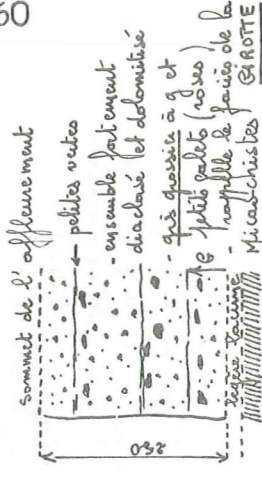 60
Sommet de l'affleurement
pelites vertes
- ensemble fortement
diaclasé et dolomitisé
- grès grossier à g et
petits galets (roses)
- rappelle le faciès de la
GIROTTE
250
G
Micaschistes